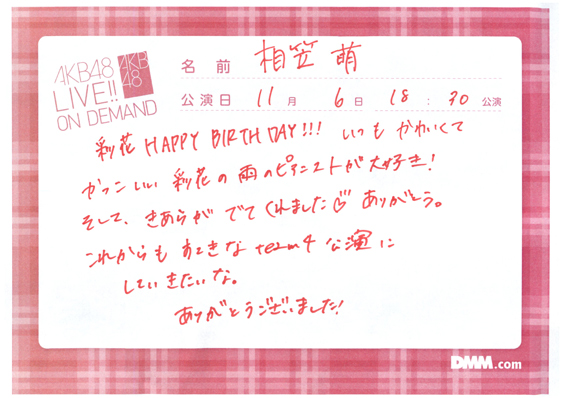 AKB48
LIVE!!
ON DEMAND
AKB
48
名前 相笠 萌
公演日 11月 6日 18:30 公演
彩花 HAPPY BIRTHDAY!!! いつも かわいくて
かっこいい 彩花の 雨のピアニストが大好き!
そして、きあらが でてくれました♡ ありがとう。
これからも すてきな team4 公演に
していきたいな。
ありがとうございました!
DMM.com